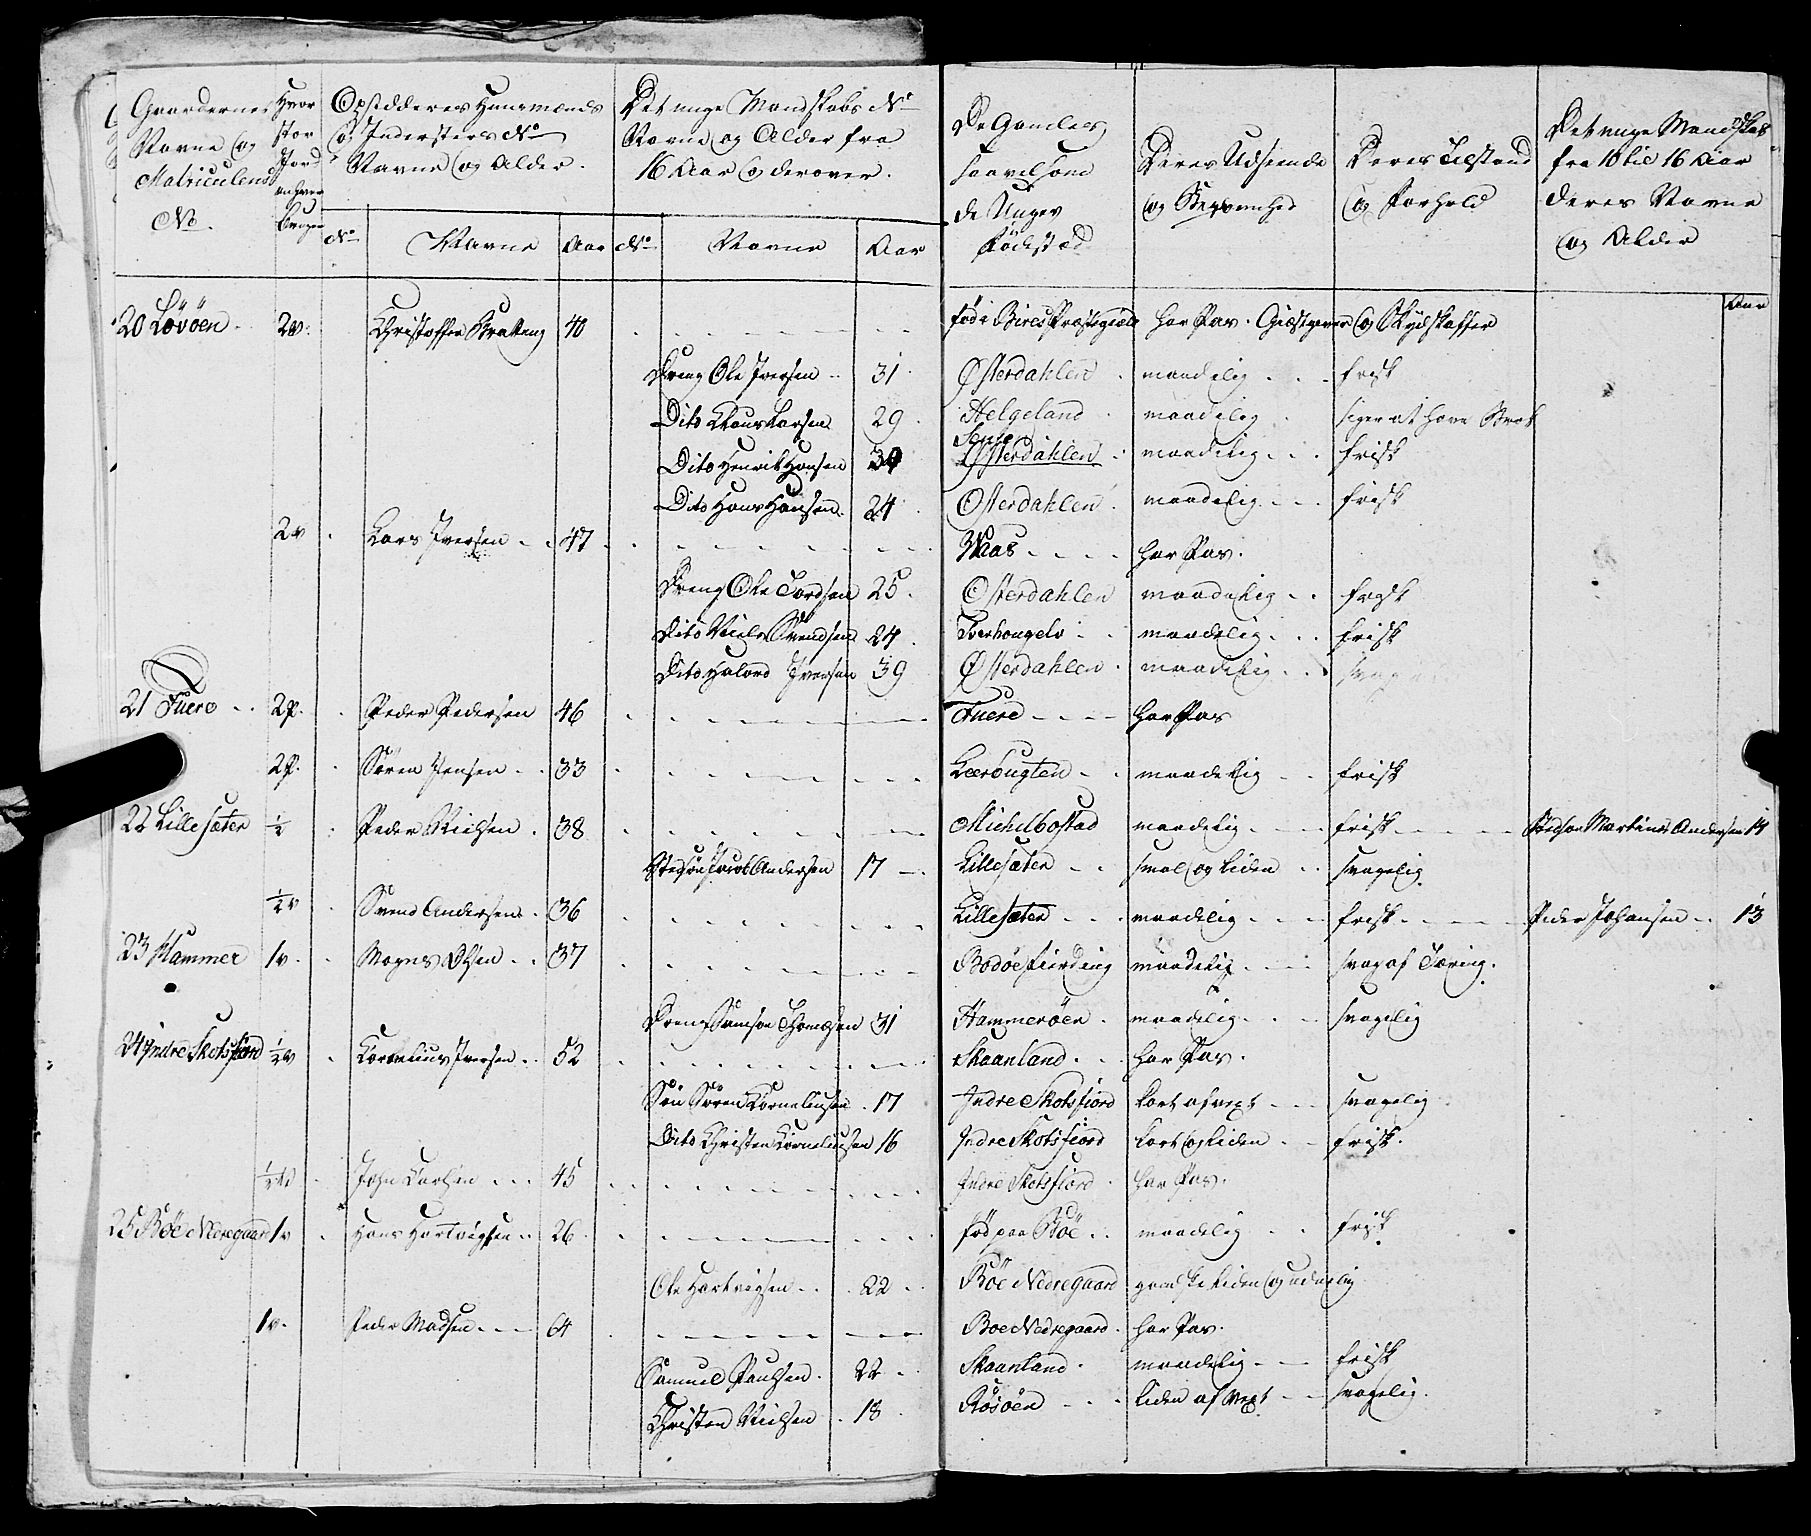 Gaardernes Navne og Matriculens No.
Hvor stor Jord enhver bruger
Opsidderes Huusmænds og Indersters No Navne og Alder.
Det unge Mandskabs No Navne og Alder fra 16 Aar og derover.
De Gamles saavelsom de Unges Fødested
Deres Udseende og Beqvemhed
Deres Tilstand og Forhold
Det unge Mandskab fra 10 til 16 Aar deres Navne og Alder
No Navne Aar No Navne Aar
Aar
20 Løvöen 2v. Christoffer Bratteng 40 fød i Birds Præstegield har Pas. Giæstgiver og Skydskaffer
Dreng Ole Iversen 31 Østerdahlen maadelig frisk
Dito Claus Larsen 29 Helgeland maadelig siger at have Brok
Senie
Dito Henrik Hansen 30 Østerdahlen maadelig frisk
Dito Hans Hansen 24 Østerdahlen maadelig frisk
2v Lars Iversen 47 Naes har Pas.
Dreng Ole Tordsen 25 Østerdahlen maadelig frisk
Dito Niels Svendsen 24 Sverhougelv maadelig frisk
Dito Halvord Iversen 39 Østerdahlen maadelig svag
21 Fuere 2p. Peder Pedersen 46 Fuere har Pas
2p. Søren Jensen 33 Leerbugten maadelig frisk
22 Lillesæter ½ Peder Nielsen 38 Michelbostad maadelig frisk Stedsøn Martinus Andersen 14
Stedsøn Jacob Andersen 17 Lillesæter smal og liden svagelig
½v Svend Andersen 36 Lillesæter maadelig frisk Peder Johansen 13
23 Hammer 1v. Mogns Olsen 37 Bodøe Fierding maadelig svag af Tæring.
Dreng Samson Thomesen 31 Hammerøen maadelig svagelig
24 Indre Skotsfiord ½v Cornelius Iversen 52 Skaanland har Pas.
Søn Søren Corneliusen 17 Indre Skotsfiord kort af vext svagelig
Dito Christen Corneliusen 16 Indre Skotsfiord kort og liden frisk.
½v John Carlsen 45 Indre Skotsfiord har Pas.
25 Bøe Nedregaard 1v Hans Hartvigsen 26 fød paa Bøe maadelig frisk
Ole Hartvigsen 22 Bøe Nedregaard gandske liden og uduelig
1v. Peder Madsen 64 Boe Nedregaard har Pas.
Samuel Paulsen 22 Skaanland maadelig frisk
Christen Nielsen 18 Røsøen liden af vext svagelig.